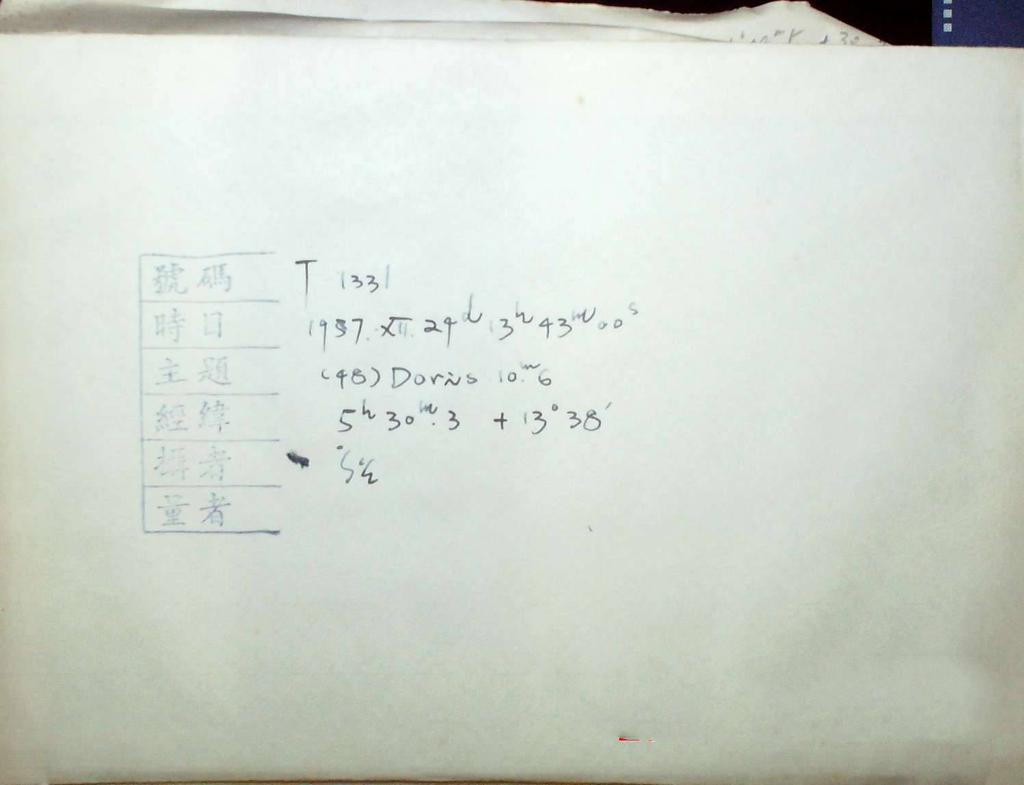 號碼 T 1331
時日 1957. XII. 29ᵈ 13ʰ 43ᵐ 00ˢ
主題 (48) Doris 10.ᵐ6
經緯 5ʰ 30ᵐ.3 + 13°38′
攝者
量者